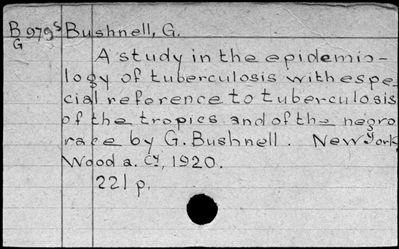 B979s Bushnell, G.
G
A study in the epidemio-
logy of tuberculosis with espe
cial reference to tuberculosis
of the tropics and of the negro
race by G. Bushnell. New York,
Wood a. Cy, 1920.
221 p.